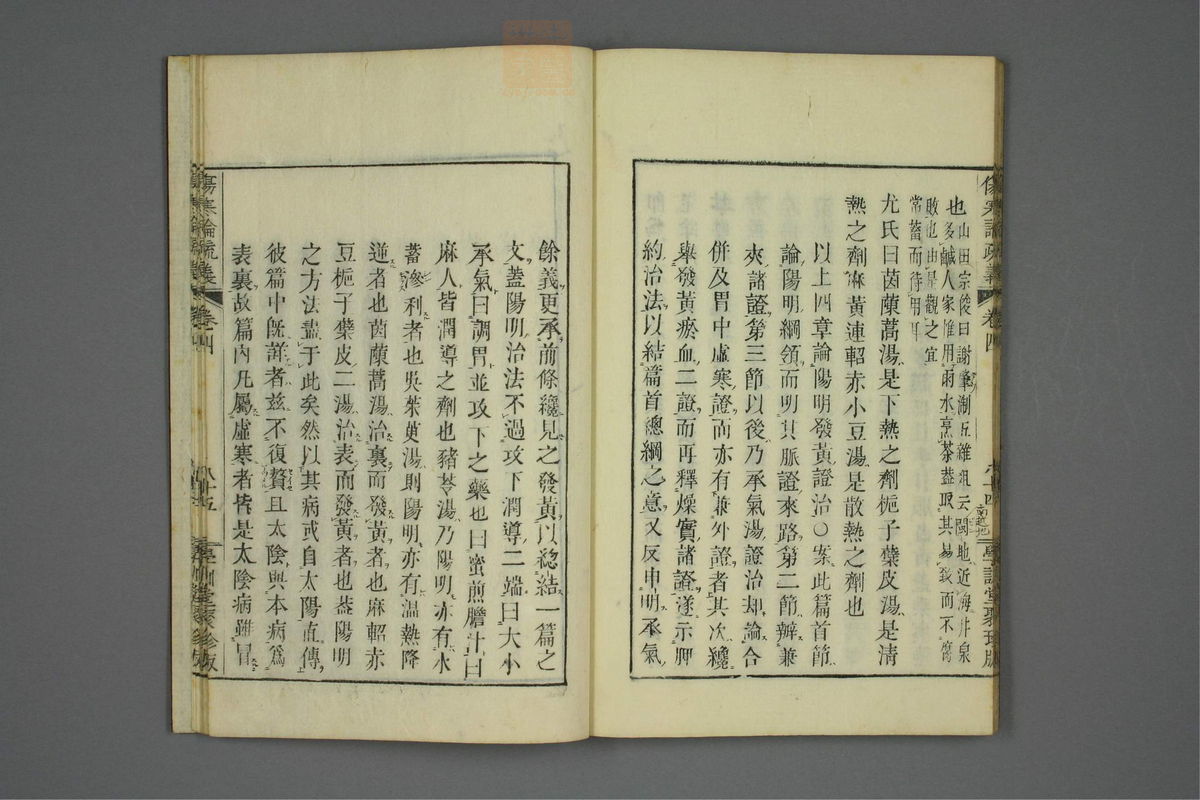 傷寒論疏義 卷四 八十四 學訓堂聚珍版
也山田宗俊曰謝肇淛五雜俎云閩地近海井泉
多鹹人家惟用雨水烹茶蓋取其易致而不腐
敗也由是觀之宜
常蓄而待用耳
尤氏曰茵蔯蒿湯是下熱之劑梔子蘗皮湯是清
熱之劑麻黃連軺赤小豆湯是散熱之劑也
以上四章論陽明發黃證治○案此篇首節
論陽明綱領而明其脈證來路第二節辨兼
夾諸證第三節以後乃承氣湯證治却論合
併及胃中虛寒證而亦有兼外證者其次纔
舉發黃瘀血二證而再釋燥實諸證遂示脾
約治法以結篇首總綱之意又反申明承氣
餘義更承前條纔見之發黃以總結一篇之
文蓋陽明治法不過攻下潤導二端曰大小
承氣曰調胃並攻下之藥也曰蜜煎膽汁曰
麻人皆潤導之劑也豬苓湯乃陽明亦有水
蓄滲利者也吳茱萸湯則陽明亦有溫熱降
逆者也茵蔯蒿湯治裏而發黃者也麻軺赤
豆梔子蘗皮二湯治表而發黃者也蓋陽明
之方法盡于此矣然以其病或自太陽直傳
彼篇中旣辭者玆不復贅且太陰與本病爲
表裏故篇內凡屬虛寒者皆是太陰病雖冒
傷寒論疏義 卷四 八十五 學訓堂聚珍版